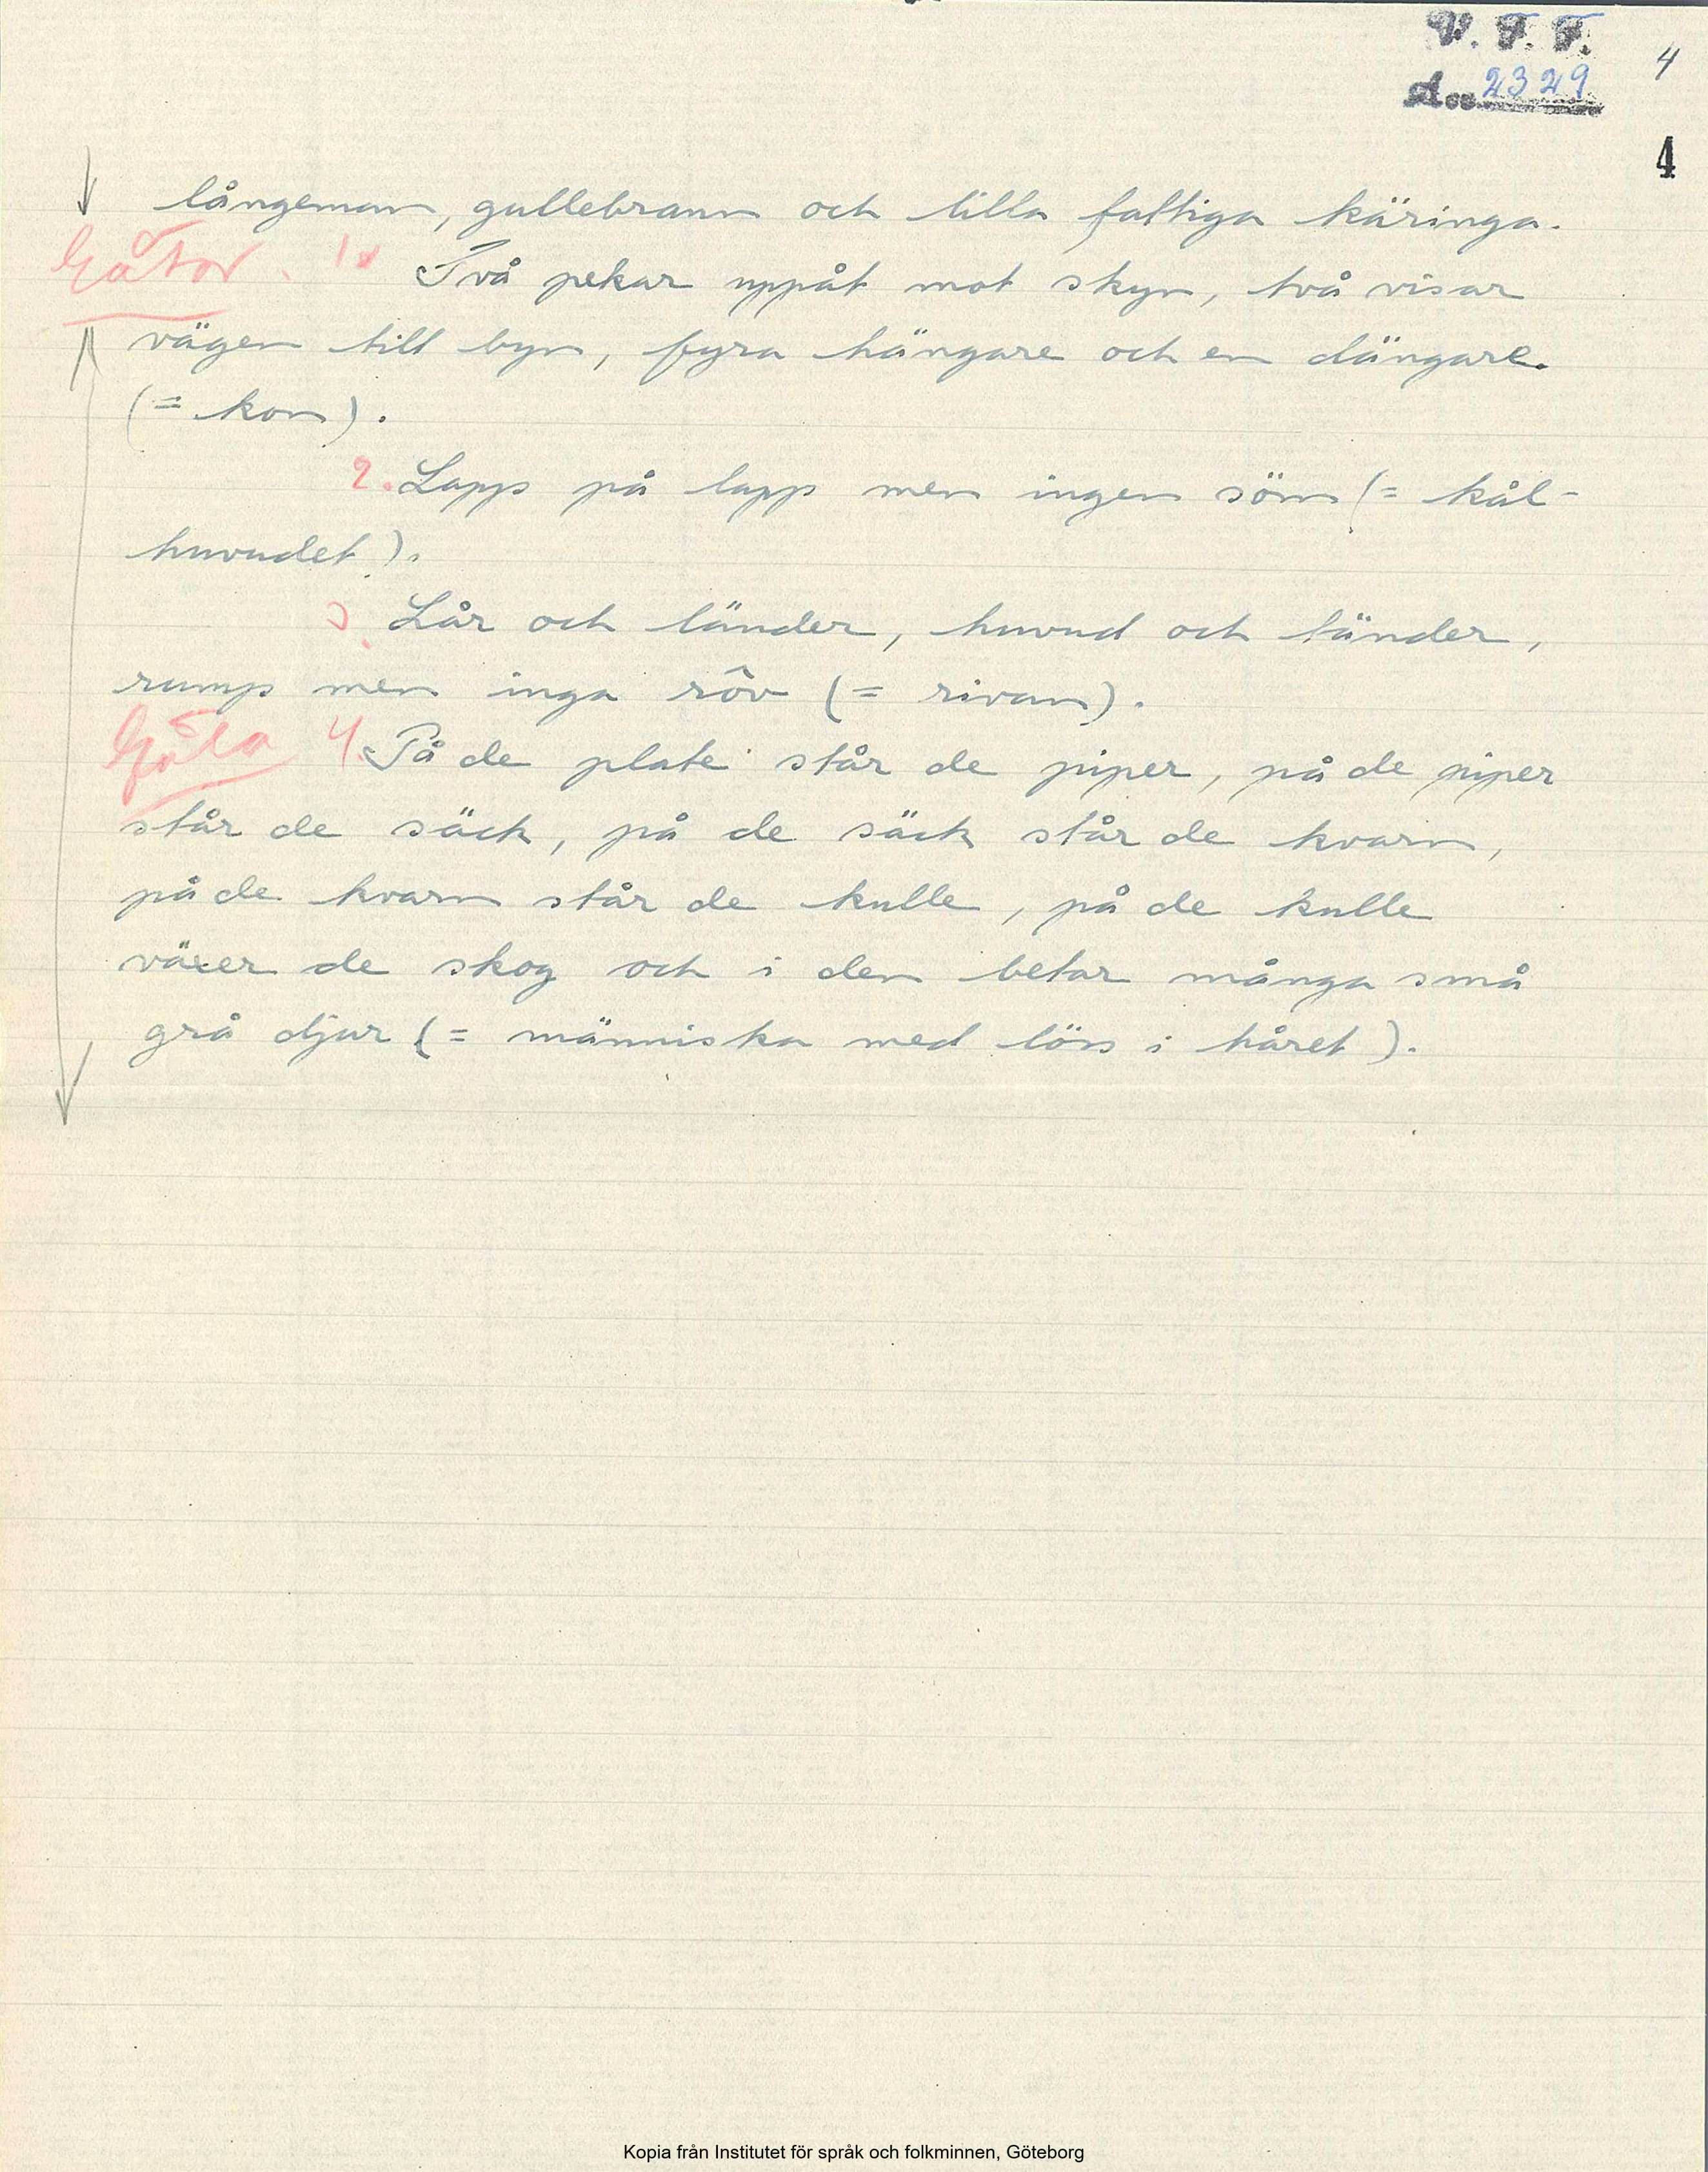 V. F. F.
4
Acc. 2329
4
långeman, gullebrann och lilla fattiga käringa.
Gåtor. 1. Två pekar uppåt mot skyn, två visar
vägen till byn, fyra hängare och en dängare.
(= kon).
2. Lapp på lapp men ingen söm (= kål-
huvudet).
3. Lår och länder, huvud och tänder,
rump men inga rôv (= rivan).
Gåta 4. På de plate står de piper, på de piper
står de säck, på de säck står de kvarn,
på de kvarn står de kulle, på de kulle
växer de skog och i den betar många små
grå djur (= människa med löss i håret).
Kopia från Institutet för språk och folkminnen, Göteborg